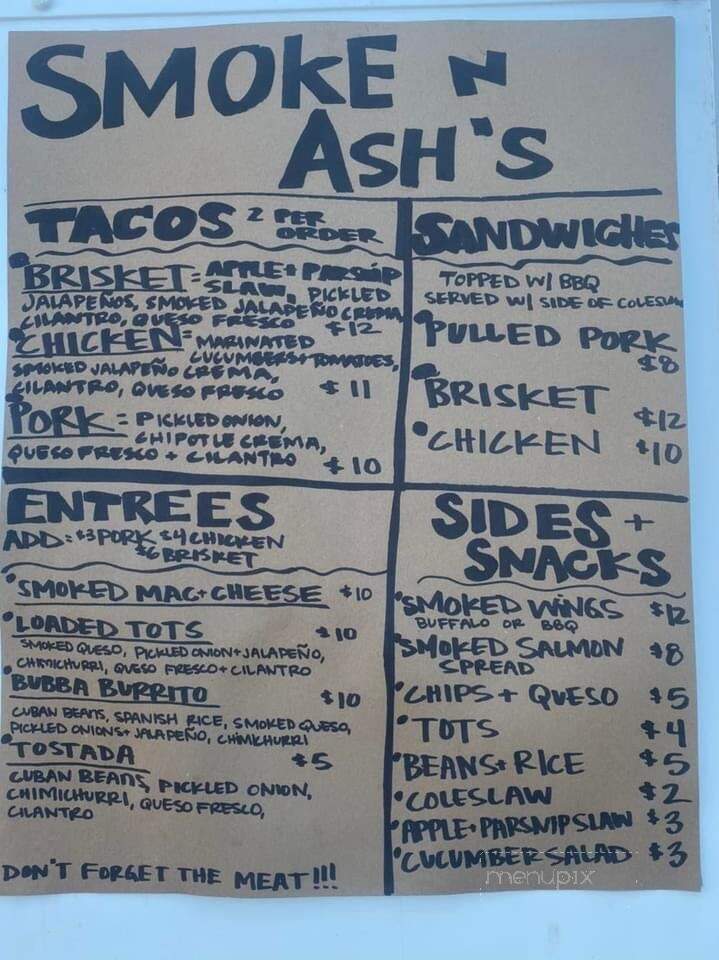 SMOKE N
ASH'S
TACOS 2 PER
ORDER
BRISKET = APPLE + PARSNIP
SLAW, PICKLED
JALAPEÑOS, SMOKED JALAPEÑO CREMA,
CILANTRO, QUESO FRESCO $12
CHICKEN = MARINATED
CUCUMBERS + TOMATOES,
SMOKED JALAPEÑO CREMA,
CILANTRO, QUESO FRESCO $11
PORK = PICKLED ONION,
CHIPOTLE CREMA,
QUESO FRESCO + CILANTRO $10
SANDWICHES
TOPPED W/ BBQ
SERVED W/ SIDE OF COLESLAW
PULLED PORK
$8
BRISKET
$12
CHICKEN $10
ENTREES
ADD: $3 PORK $4 CHICKEN
$6 BRISKET
SMOKED MAC + CHEESE $10
LOADED TOTS $10
SMOKED QUESO, PICKLED ONION + JALAPEÑO,
CHIMICHURRI, QUESO FRESCO + CILANTRO
BUBBA BURRITO $10
CUBAN BEANS, SPANISH RICE, SMOKED QUESO,
PICKLED ONIONS + JALAPEÑO, CHIMICHURRI
TOSTADA $5
CUBAN BEANS, PICKLED ONION,
CHIMICHURRI, QUESO FRESCO,
CILANTRO
DON'T FORGET THE MEAT!!!
SIDES +
SNACKS
SMOKED WINGS $12
BUFFALO OR BBQ
SMOKED SALMON $8
SPREAD
CHIPS + QUESO $5
TOTS $4
BEANS + RICE $5
COLESLAW $2
APPLE + PARSNIP SLAW $3
CUCUMBER SALAD $3
menupix